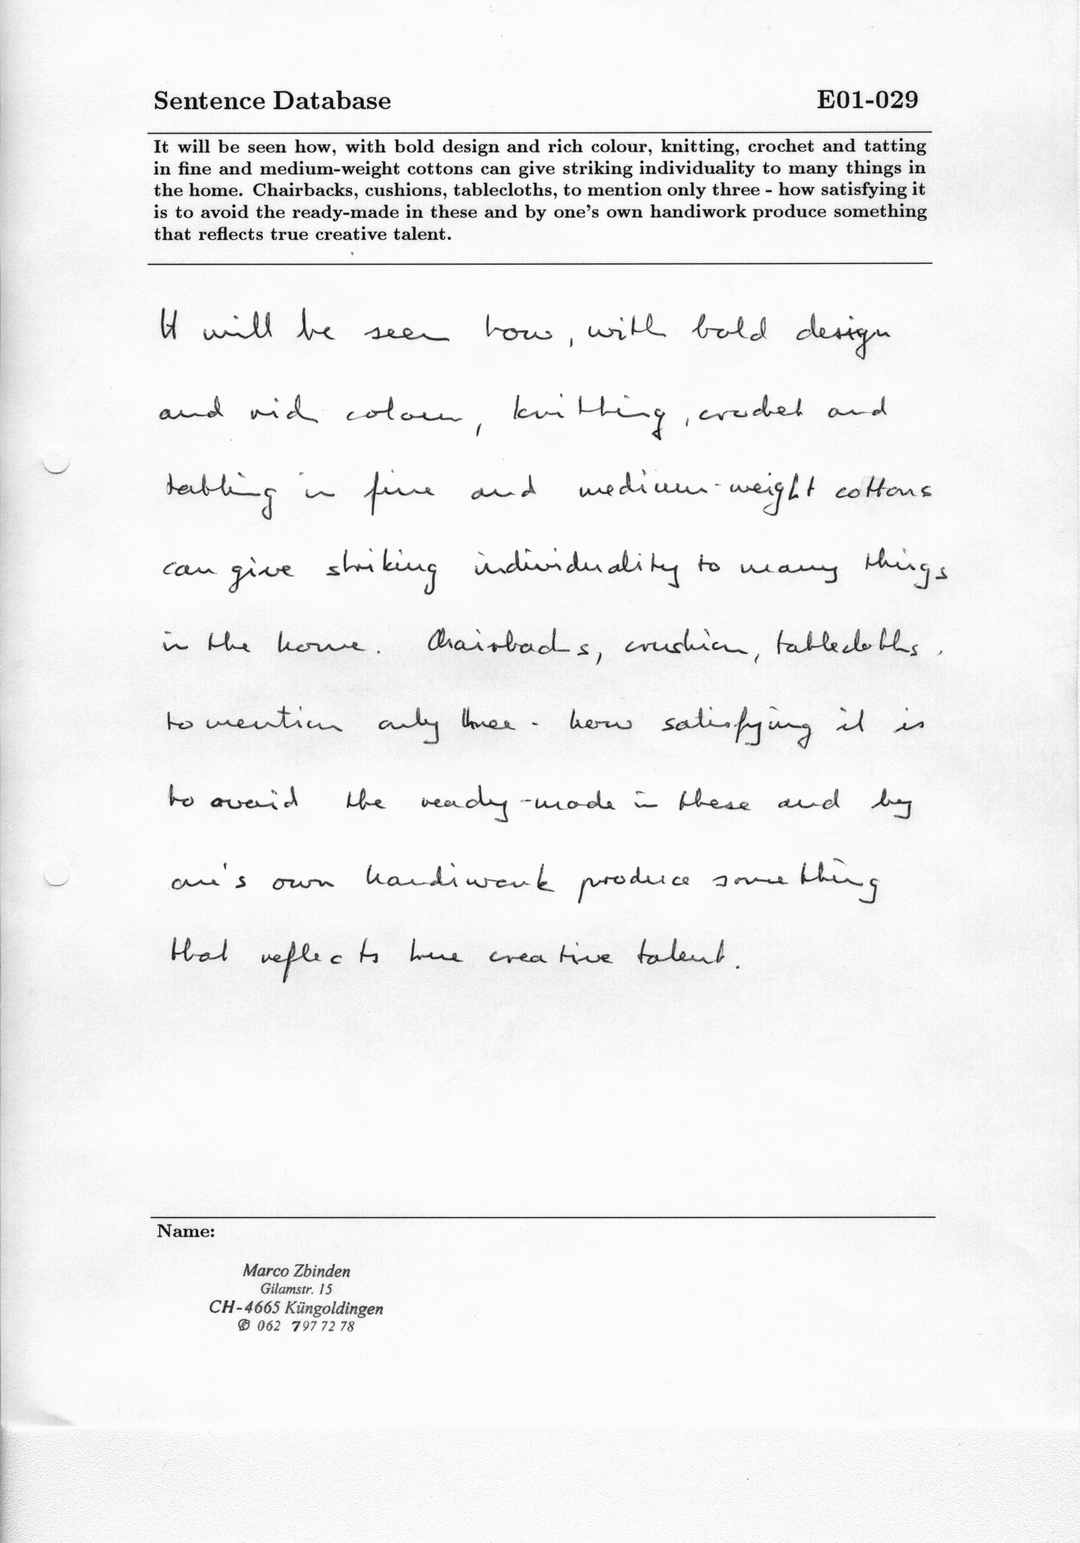 Sentence Database E01-029
It will be seen how, with bold design and rich colour, knitting, crochet and tatting
in fine and medium-weight cottons can give striking individuality to many things in
the home. Chairbacks, cushions, tablecloths, to mention only three - how satisfying it
is to avoid the ready-made in these and by one's own handiwork produce something
that reflects true creative talent.
It will be seen how, with bold design
and rich colour, knitting, crochet and
tatting in fine and medium-weight cottons
can give striking individuality to many things
in the home. Chairbacks, cushion, tablecloths,
to mention only three - how satisfying it is
to avoid the ready-made in these and by
one's own handiwork produce something
that reflects true creative talent.
Name:
Marco Zbinden
Gilamstr. 15
CH-4665 Küngoldingen
✆ 062 797 72 78